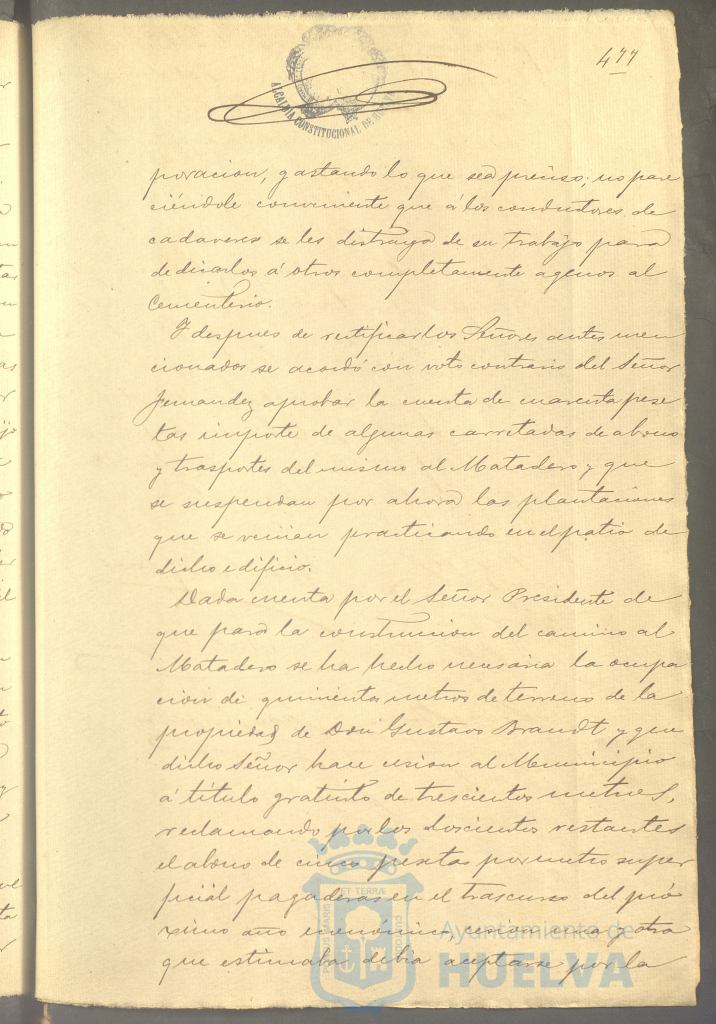 477
ALCALDIA CONSTITUCIONAL DE HUELVA
poracion, gastando lo que sea preciso; no pare
ciéndole conveniente que á los conductores de
cadaveres se les distraya de su trabajo para
dedicarlos á otros completamente agenos al
Cementerio.
Y despues de rectificar los Señores antes men
cionados se acordó con voto contrario del Señor
Fernandez aprobar la cuenta de cuarenta pese
tas importe de algunas carretadas de abono
y trasportes del mismo al Matadero y que
se suspendan por ahora las plantaciones
que se venian practicando en el patio de
dicho edificio.
Dada cuenta por el Señor Presidente de
que para la construccion del camino al
Matadero se ha hecho necesaria la ocupa
cion de quinientos metros de terreno de la
propiedad de Don Gustavo Brandt y que
dicho Señor hace cesion al Municipio
á título gratuito de trescientos metros,
reclamando por los doscientos restantes
el abono de cinco pesetas por metro super
ficial pagaderas en el trascurso del pró
ximo año económico cesion una y otra
que estimaba debia aceptarse por la
PORTUS MARIS ET TERRÆ CUSTODIA
Ayuntamiento de
HUELVA